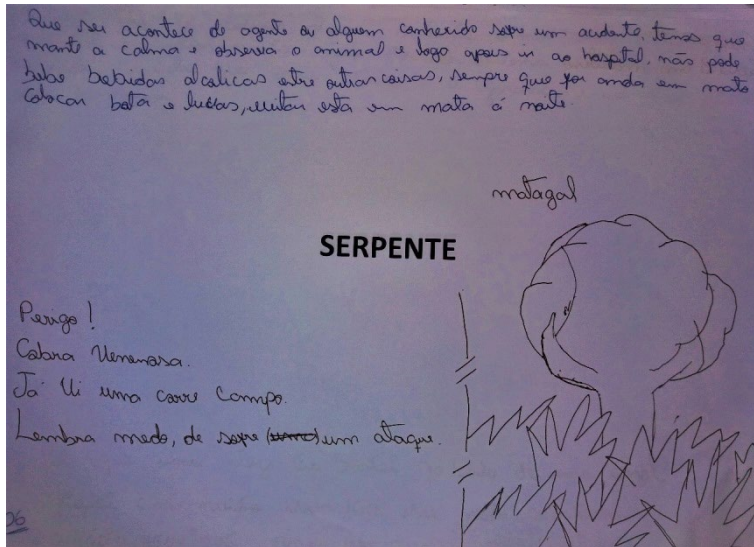 Que seu acontece de agente ou alguem conhecido sofre um acidente, temos que
mante a calma e observa o animal e logo apois ir ao hospital, não pode
bebe bebidas alcolicas etre outras coisas, sempre que for anda em mato
colocar bota e luvas, evitar esta em mata á noite.
matagal
SERPENTE
Perigo!
Cobra Venenosa.
Já Vi uma corre Campo.
Lembra medo, de sofre um ataque.
06